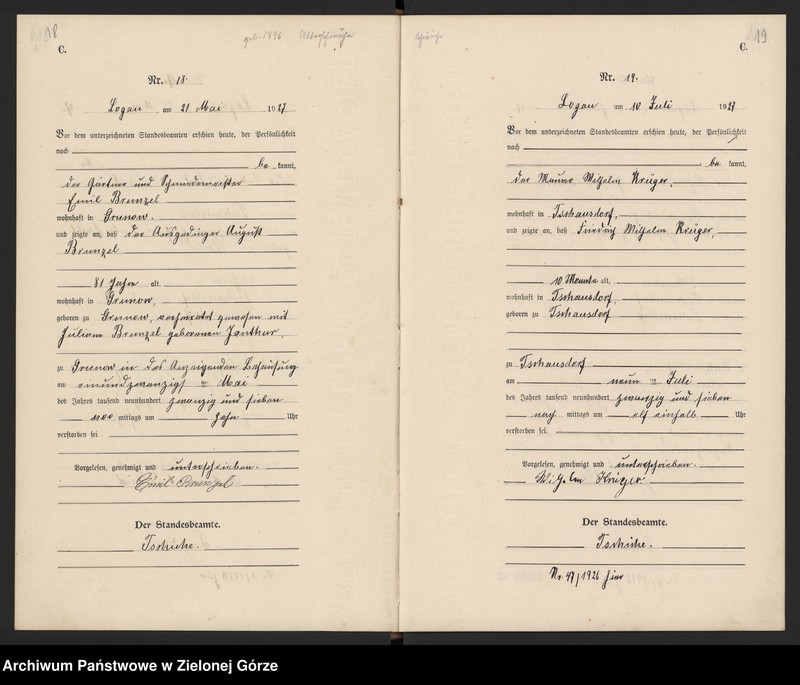 18
geb. 1896 Altersschwäche
C.
Nr. 18.
Logau am 21 Mai 1927
Vor dem unterzeichneten Standesbeamten erschien heute, der Persönlichkeit
nach
be kannt,
der Gärtner und Schmiedemeister
Emil Brunzel
wohnhaft in Grunow.
und zeigte an, daß der Ausgedinger August
Brunzel
81 Jahre alt
wohnhaft in Grunow,
geboren zu Grunow, verheiratet gewesen mit
Juliane Brunzel geborenen Janthur,
zu Grunow in des Anzeigenden Behausung
am einundzwanzigst en Mai
des Jahres tausend neunhundert zwanzig und sieben
vor mittags um zehn Uhr
verstorben sei
Vorgelesen, genehmigt und unterschrieben.
Emil Brunzel
Der Standesbeamte.
Tschiche.
19
C.
Nr. 19.
Logau am 10 Juli 1927
Vor dem unterzeichneten Standesbeamten erschien heute, der Persönlichkeit
nach
be kannt,
der Maurer Wilhelm Krüger,
wohnhaft in Tschausdorf,
und zeigte an, daß Friedrich Wilhelm Krüger,
10 Monate alt,
wohnhaft in Tschausdorf,
geboren zu Tschausdorf
zu Tschausdorf
am neun ten Juli
des Jahres tausend neunhundert zwanzig und sieben
nach mittags um elf einhalb Uhr
verstorben sei.
Vorgelesen, genehmigt und unterschrieben.
Wilhelm Krüger
Der Standesbeamte.
Tschiche.
Nr. 47/1926 hier
Archiwum Państwowe w Zielonej Górze